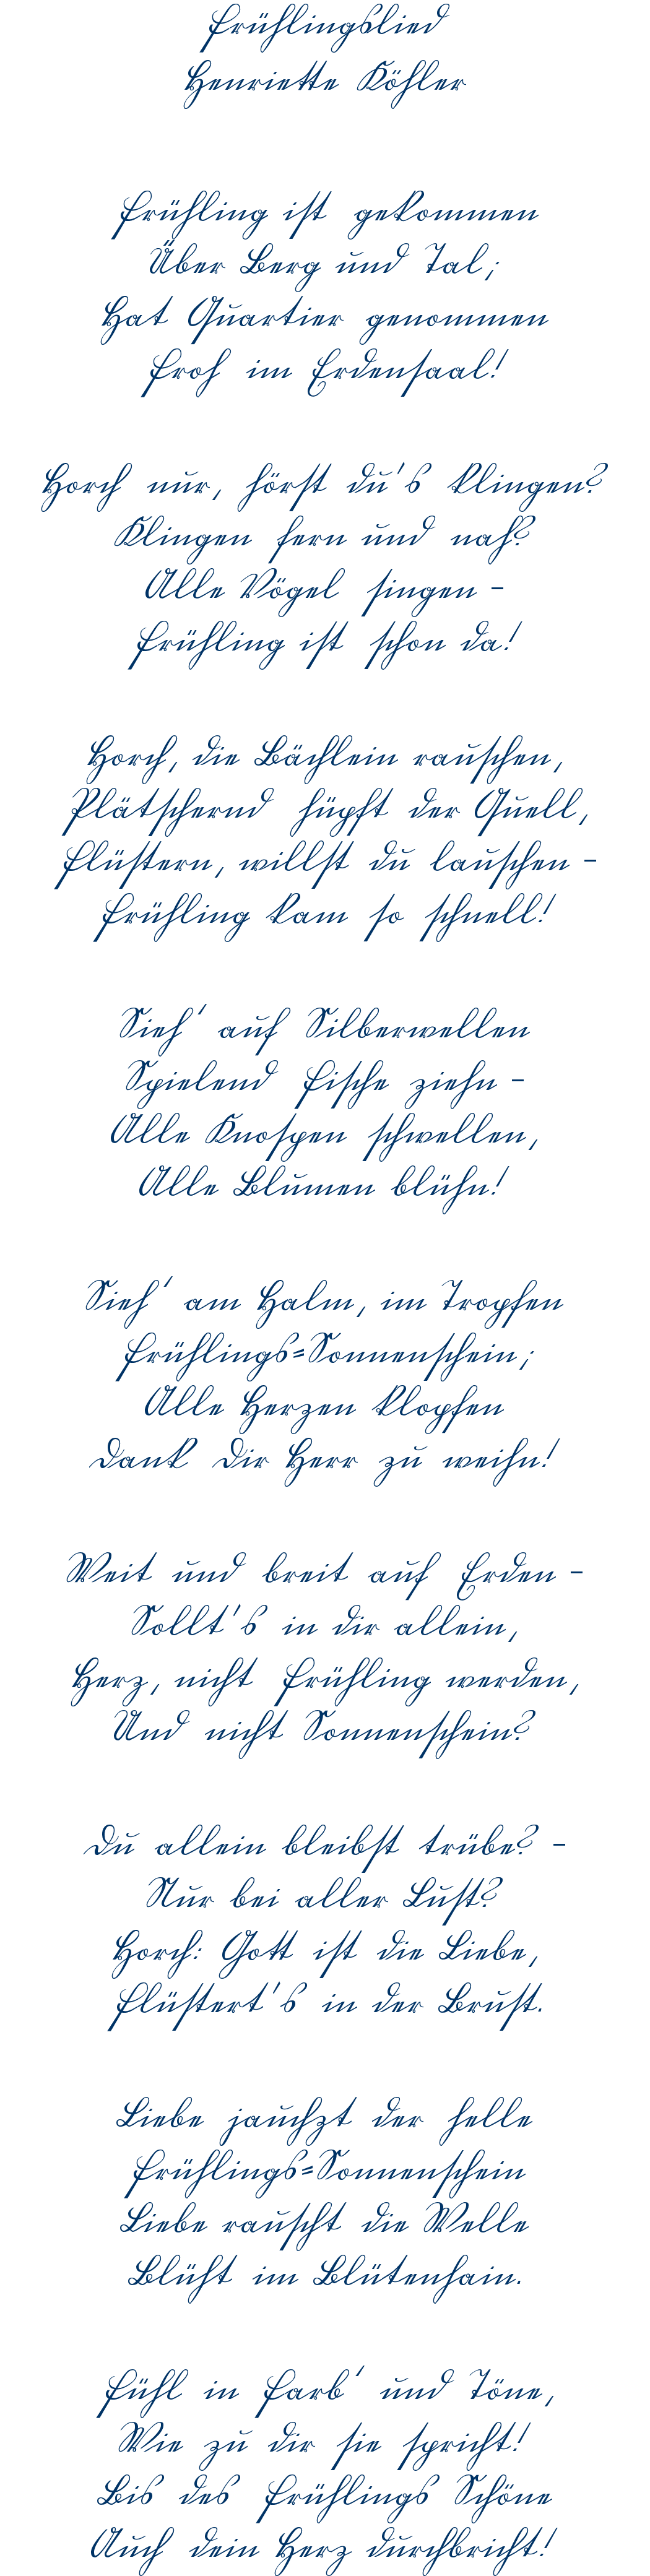 Frühlingslied
Henriette Köhler
Frühling ist gekommen
Über Berg und Tal;
Hat Quartier genommen
Froh im Erdensaal!
Horch nur, hörst du's klingen?
Klingen fern und nah?
Alle Vögel singen –
Frühling ist schon da!
Horch, die Bächlein rauschen,
Plätschernd hüpft der Quell,
Flüstern, willst du lauschen –
Frühling kam so schnell!
Sieh' auf Silberwellen
Spielend Fische ziehn –
Alle Knospen schwellen,
Alle Blumen blühn!
Sieh' am Halm, im Tropfen
Frühlings=Sonnenschein;
Alle Herzen klopfen
Dank Dir Herr zu weihn!
Weit und breit auf Erden –
Sollt's in dir allein,
Herz, nicht Frühling werden,
Und nicht Sonnenschein?
Du allein bleibst trübe? –
Nur bei aller Lust?
Horch: Gott ist die Liebe,
Flüstert's in der Brust.
Liebe jauchzt der helle
Frühlings=Sonnenschein
Liebe rauscht die Welle
Blüht im Blütenhain.
Fühl in Farb' und Töne,
Wie zu dir sie spricht!
Bis des Frühlings Schöne
Auch dein Herz durchbricht!